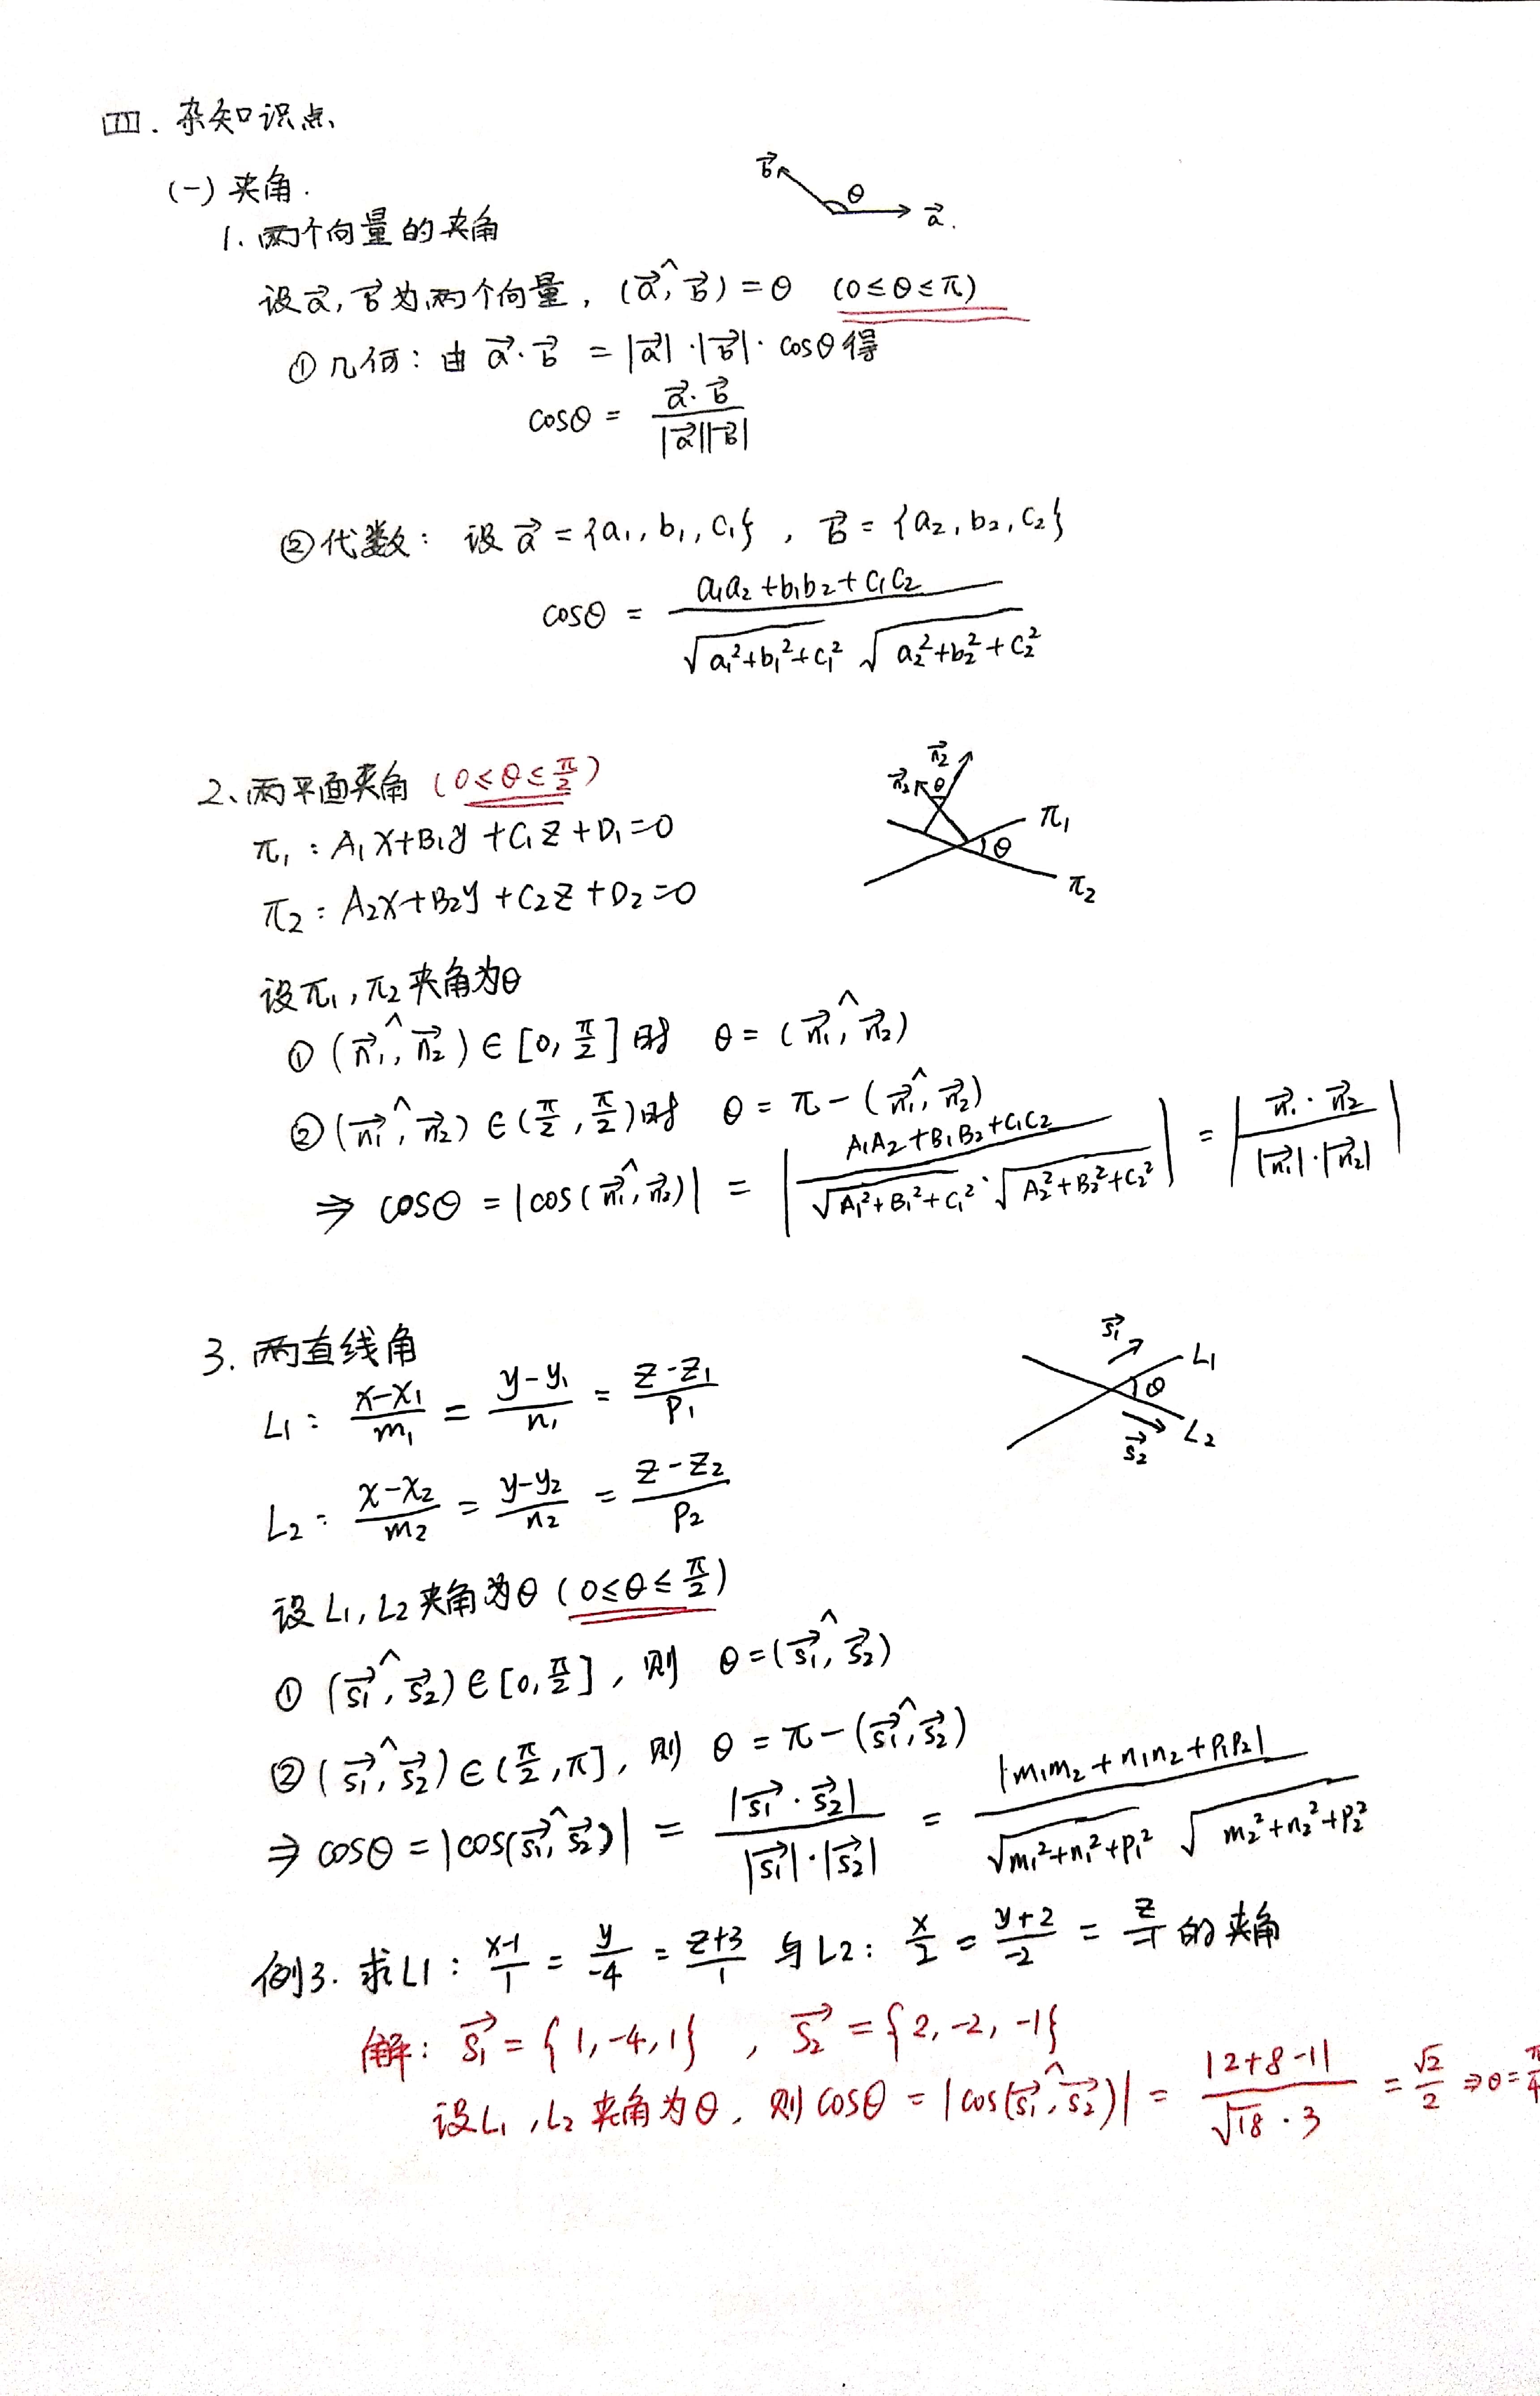 四. 杂知识点
(一) 夹角.
$\vec{b}$ θ $\vec{a}$.
1. 两个向量的夹角
设$\vec{a}$, $\vec{b}$为两个向量, $(\widehat{\vec{a}, \vec{b}}) = θ$ $(0 ≤ θ ≤ π)$
① 几何: 由 $\vec{a}·\vec{b} = |\vec{a}|·|\vec{b}|·\cosθ$ 得
$\cosθ = \frac{\vec{a}·\vec{b}}{|\vec{a}||\vec{b}|}$
② 代数: 设 $\vec{a} = \{a_1, b_1, c_1\}$, $\vec{b} = \{a_2, b_2, c_2\}$
$\cosθ = \frac{a_1a_2+b_1b_2+c_1c_2}{\sqrt{a_1^2+b_1^2+c_1^2}\sqrt{a_2^2+b_2^2+c_2^2}}$
2、两平面夹角 $(0 ≤ θ ≤ \frac{π}{2})$
$\vec{n_2}$ θ $π_1$ θ $π_2$
$π_1: A_1x+B_1y+C_1z+D_1=0$
$π_2: A_2x+B_2y+C_2z+D_2=0$
设$π_1, π_2$夹角为θ
① $(\widehat{\vec{n_1}, \vec{n_2}}) ∈ [0, \frac{π}{2}]$时 $θ = (\widehat{\vec{n_1}, \vec{n_2}})$
② $(\widehat{\vec{n_1}, \vec{n_2}}) ∈ (\frac{π}{2}, \frac{π}{2})$时 $θ = π-(\widehat{\vec{n_1}, \vec{n_2}})$
$⇒ \cosθ = |\cos(\widehat{\vec{n_1}, \vec{n_2}})| = \left|\frac{A_1A_2+B_1B_2+C_1C_2}{\sqrt{A_1^2+B_1^2+C_1^2}·\sqrt{A_2^2+B_2^2+C_2^2}}\right| = \left|\frac{\vec{n_1}·\vec{n_2}}{|\vec{n_1}|·|\vec{n_2}|}\right|$
3. 两直线角
$\vec{s_1}$ $L_1$ θ $\vec{s_2}$ $L_2$
$L_1: \frac{x-x_1}{m_1} = \frac{y-y_1}{n_1} = \frac{z-z_1}{p_1}$
$L_2: \frac{x-x_2}{m_2} = \frac{y-y_2}{n_2} = \frac{z-z_2}{p_2}$
设$L_1, L_2$夹角为θ $(0≤θ≤\frac{π}{2})$
① $(\widehat{\vec{s_1}, \vec{s_2}}) ∈ [0, \frac{π}{2}]$, 则 $θ=(\widehat{\vec{s_1}, \vec{s_2}})$
② $(\widehat{\vec{s_1}, \vec{s_2}}) ∈ (\frac{π}{2}, π]$, 则 $θ = π-(\widehat{\vec{s_1}, \vec{s_2}})$
$⇒ \cosθ = |\cos(\widehat{\vec{s_1}, \vec{s_2}})| = \frac{|\vec{s_1}·\vec{s_2}|}{|\vec{s_1}|·|\vec{s_2}|} = \frac{|m_1m_2+n_1n_2+p_1p_2|}{\sqrt{m_1^2+n_1^2+p_1^2}\sqrt{m_2^2+n_2^2+p_2^2}}$
例3. 求L1: $\frac{x-1}{1} = \frac{y}{-4} = \frac{z+3}{1}$ 与L2: $\frac{x}{2} = \frac{y+2}{-2} = \frac{z}{-1}$ 的夹角
解: $\vec{s_1} = \{1, -4, 1\}$, $\vec{s_2} = \{2, -2, -1\}$
设$L_1, L_2$夹角为θ, 则$\cosθ = |\cos(\widehat{\vec{s_1}, \vec{s_2}})| = \frac{|2+8-1|}{\sqrt{18}·3} = \frac{\sqrt{2}}{2} ⇒ θ=\frac{π}{4}$